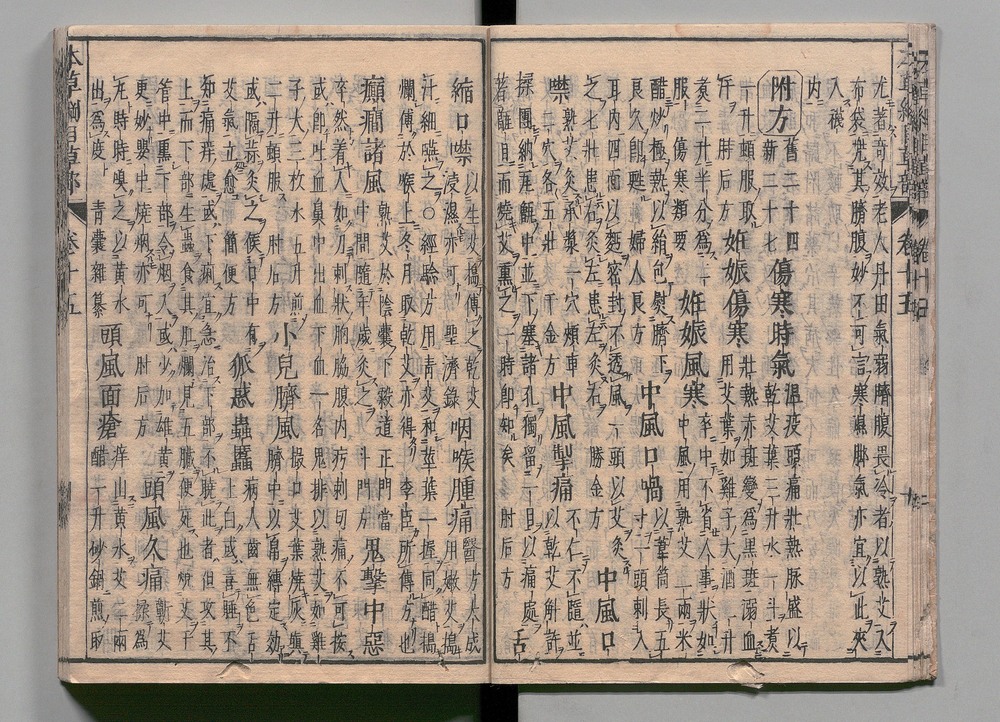 尤著奇效老人丹田氣弱臍腹畏冷者以熟艾入
布袋兜其臍腹妙不可言寒濕脚氣亦宜以此夾
入襪
內
附方 舊二十四新二十七 傷寒時氣 溫疫頭痛壯熱脉盛以乾艾葉三升水一斗煮
一升頓服取汗 肘后方 妊娠傷寒 壯熱赤斑變為黑斑溺血用艾葉如雞子大酒三升
煮二升半分為二服 傷寒類要 妊娠風寒 卒中不省人事狀如中風用熟艾三兩米
醋炒極熱以絹包熨臍下良久即甦 婦人良方 中風口喎 以葦筒長五寸一頭刺入
耳內四面以麪密封不透風一頭以艾灸之七壯患右灸左患左灸右 勝金方 中風口
噤 熟艾灸承漿一穴頰車二穴各五壯 千金方 中風掣痛 不仁不隨並以乾艾斛許
揉團納瓦甑中並下塞諸孔獨留一目以痛處著甑目而燒艾熏之一時即知矣 肘后方 舌
縮口噤 以生艾搗傅之乾艾浸濕亦可 聖濟錄 咽喉腫痛 醫方大成用嫩艾搗
汁細嚥之○經驗方用青艾和莖葉一握同醋搗爛傅於喉上冬月取乾艾亦得李臣所傳方也
癲癇諸風 熟艾於陰囊下穀道正門當中間隨年歲灸之 斗門方 鬼擊中惡
卒然着人如刀刺狀胸脇腹內㽱刺切痛不可按或即吐血鼻中出血下血一名鬼排以熟艾如雞
子大三枚水五升煎二升頓服 肘后方 小兒臍風 撮口艾葉燒灰填臍中以帛縛定効
或隔蒜灸之候口中有艾氣立愈 簡便方 狐惑蟲䘌 病人齒無色舌上白或喜睡不
知痛痒處或下痢宜急治下部不曉此者但攻其上而下部生蟲食其肛爛見五臟便死也燒艾于
管中熏下部令烟入或少加雄黃更妙罌中燒烟亦可 肘后方 頭風久痛 蘄艾揉為
丸時時嗅之以黃水出為度 青囊雜纂 頭風面瘡 痒出黃水艾二兩醋一升砂鍋煎取
本草綱目草部 卷十五